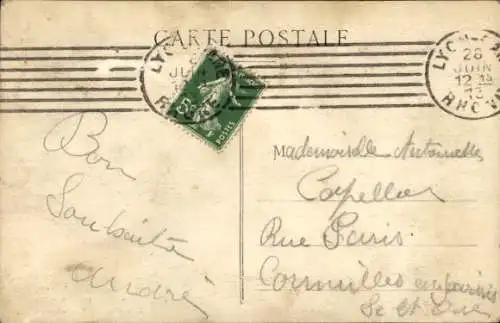 CARTE POSTALE
LYON-GARE
28
JUIN
12 45
13
RHONE
5c
POSTES
Bon
Souhaits
André
Mademoiselle Antoinette
Capellier
Rue Paris
Cormeilles en parisis
Se et Oise